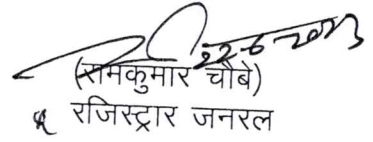 22-6-2023
(रामकुमार चौबे)
रजिस्ट्रार जनरल